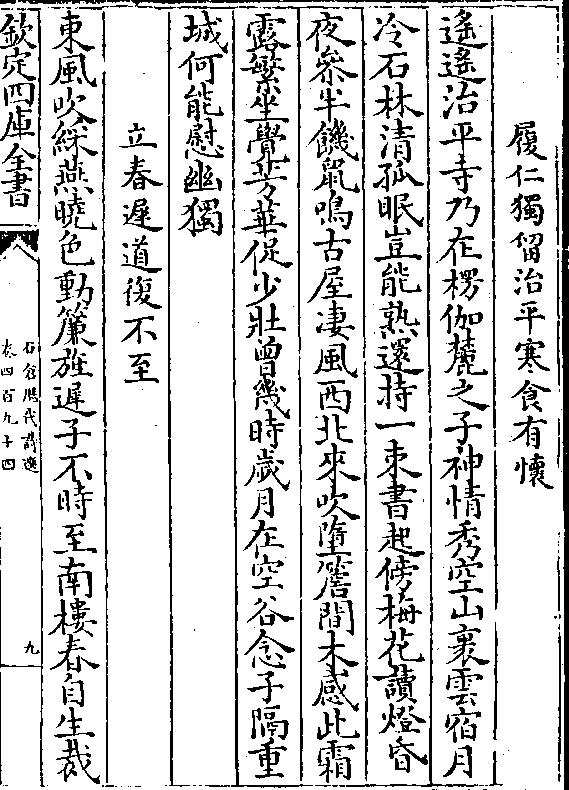 履仁獨留治平寒食有懷
遙遙治平寺乃在楞伽麓之子神情秀空山裹雲宿月
冷石林清孤眠豈能熟還持一束書起傍梅花讀燈昏
夜參半饑鼠鳴古屋凄風西北來吹墮簷間木感此霜
露繁坐覺芳華促少壯曾幾時歲月在空谷念子隔重
城何能慰幽獨
立春遲道復不至
東風吹綵燕曉色動簾旌遲子不時至南樓春自生裁
欽定四庫全書
石倉歷代詩選
卷四百九十四
九